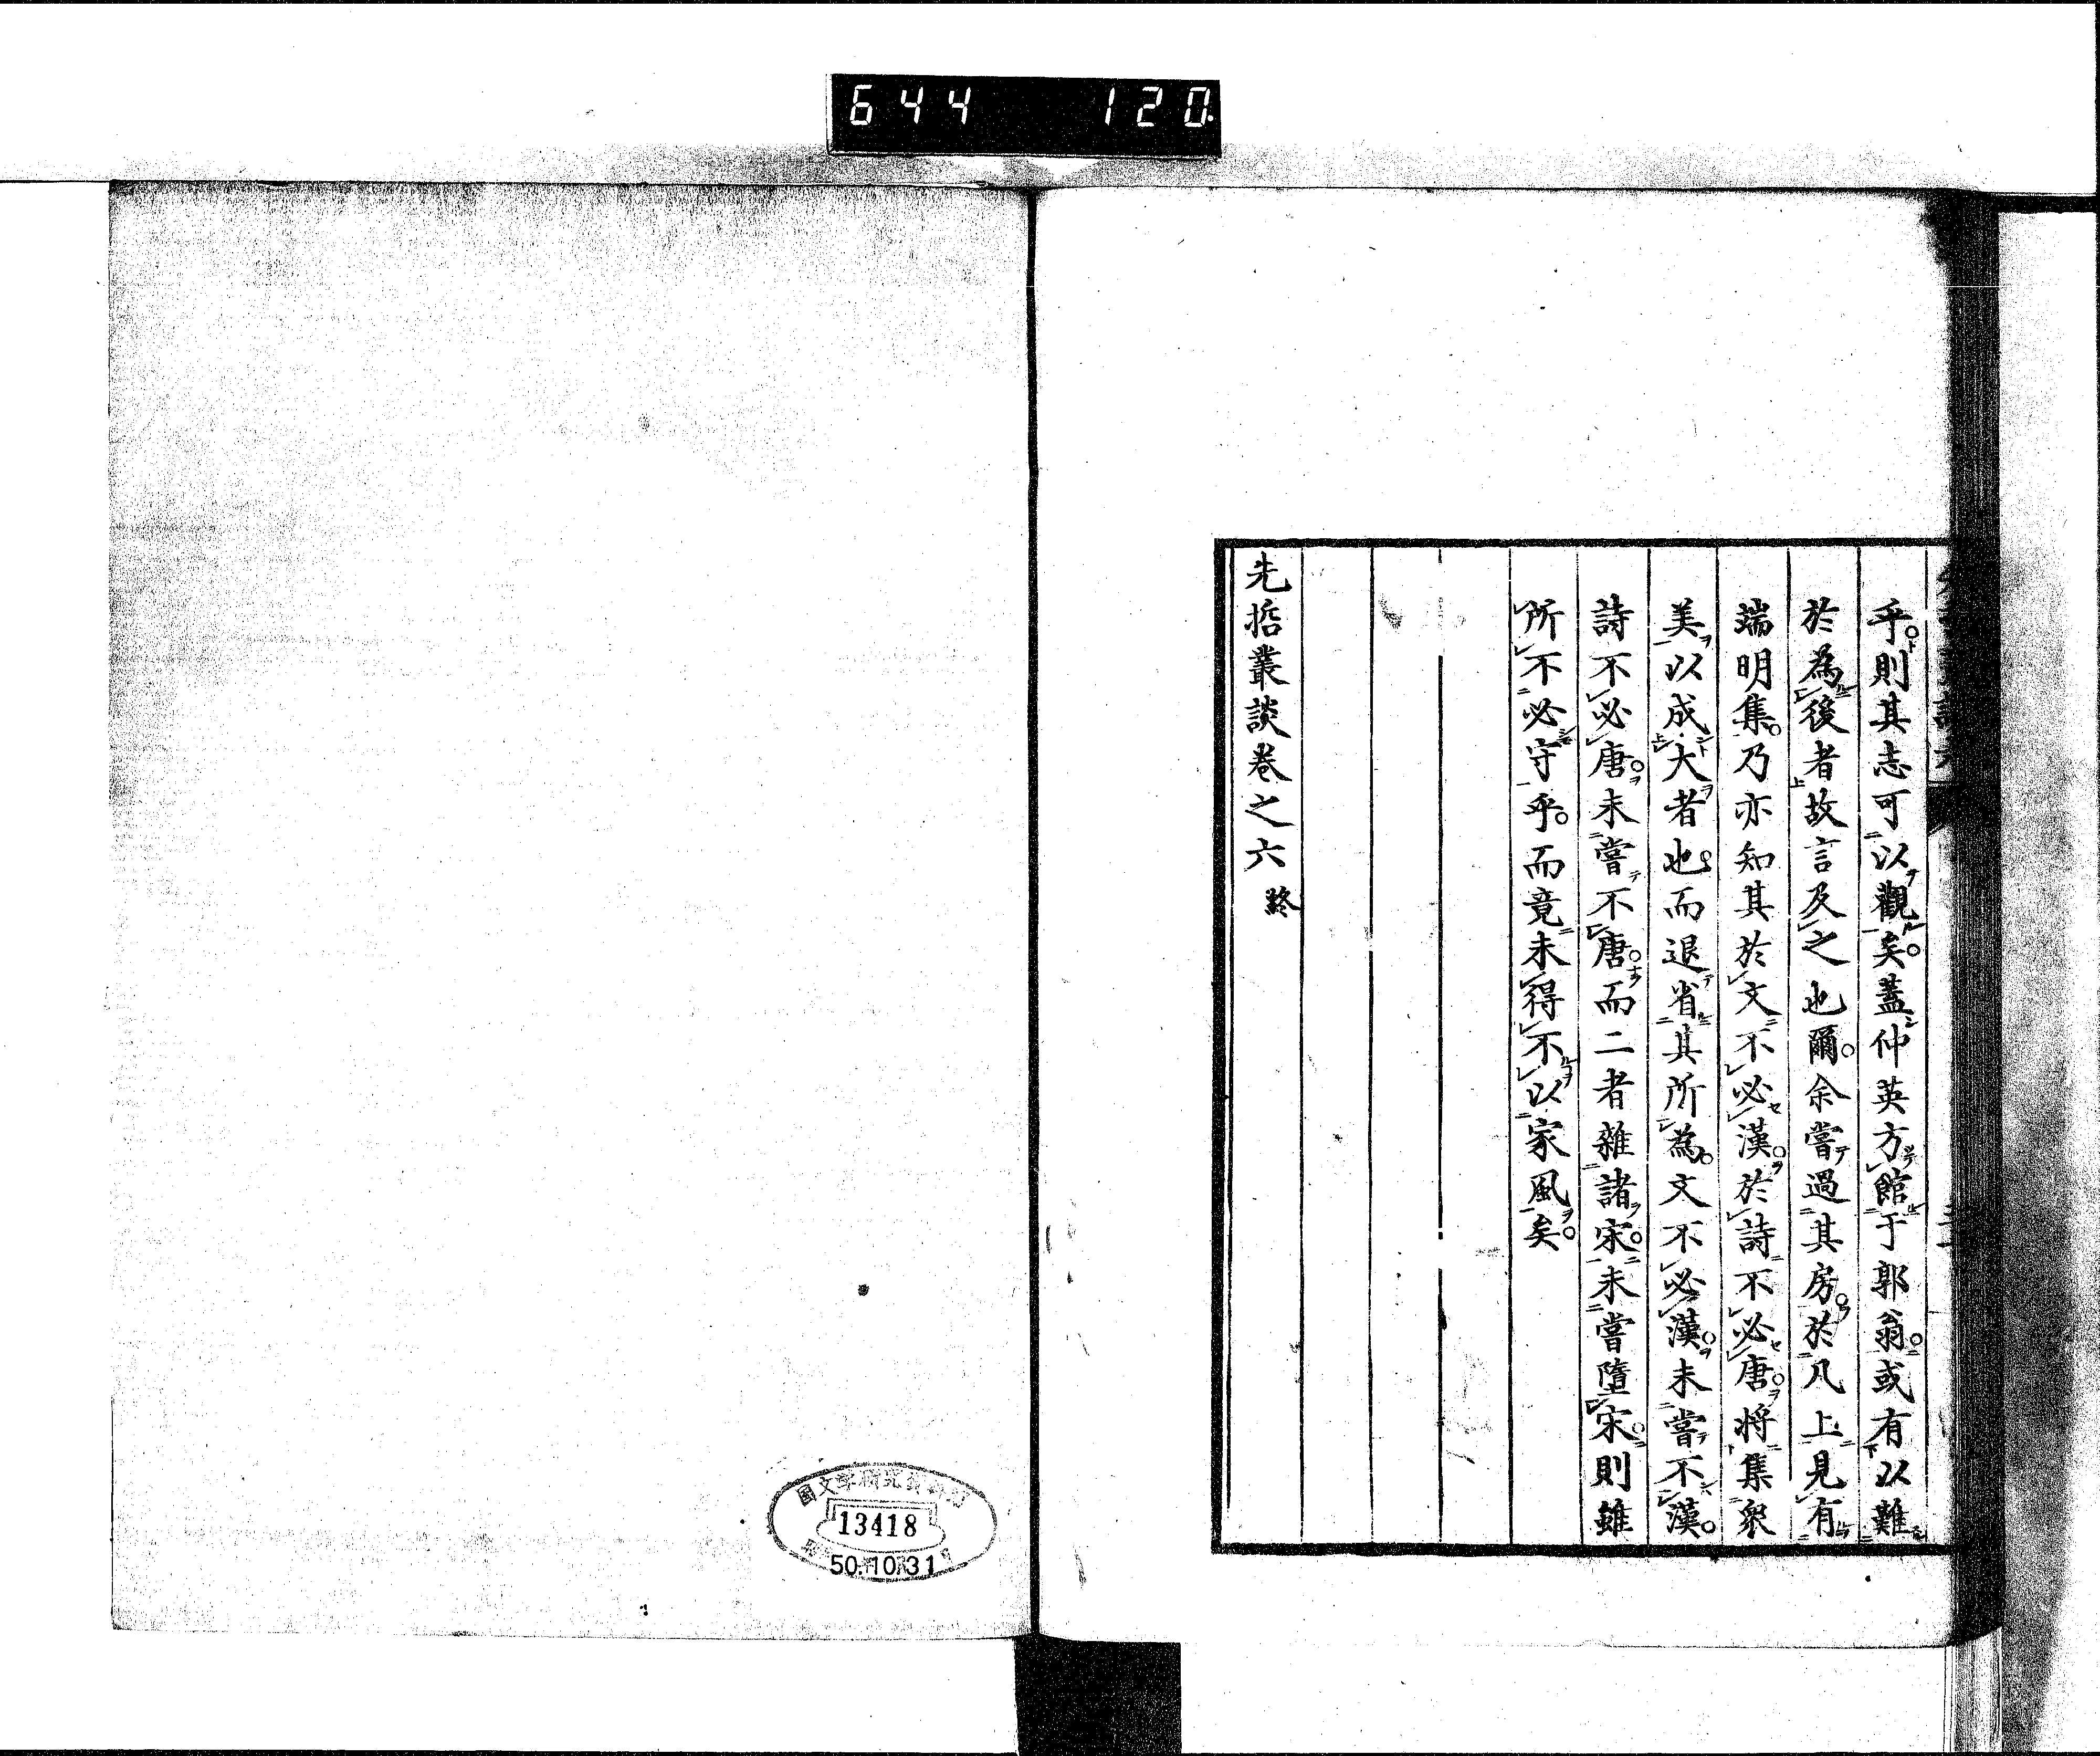 644 120
乎則其志可以觀矣蓋仲英方館于郭翁或有以難
於為後者故言及之也爾余嘗過其房於凡上見有
端明集乃亦知其於文不必漢於詩不必唐將集眾
美以成大者也而退省其所為文不必漢未嘗不漢
詩不必唐未嘗不唐而二者雜諸宋未嘗墮宋則雖
所不必守乎而竟未得不以家風矣
先哲叢談卷之六終
13418
50.10.31